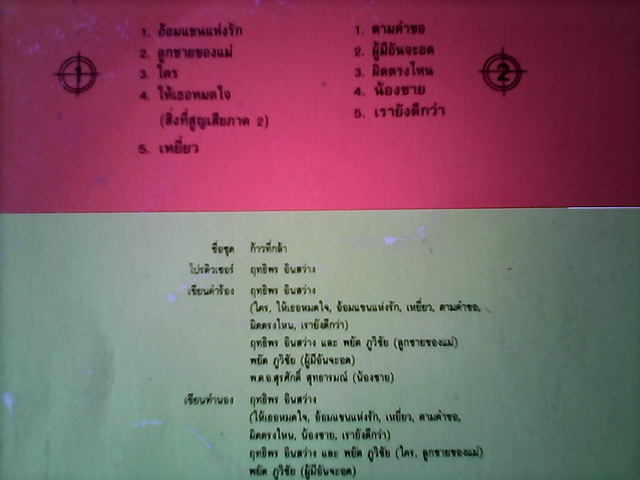 1
1. อ้อมแขนแห่งรัก
2. ลูกชายของแม่
3. ใคร
4. ให้เธอหมดใจ
(สิ่งที่สูญเสียภาค 2)
5. เหยี่ยว
1. ตามคำขอ
2. ผู้มีอันจะอด
3. ผิดตรงไหน
4. น้องชาย
5. เรายังดีกว่า
2
ชื่อชุด ก้าวที่กล้า
โปรดิวเซอร์ ฤทธิพร อินสว่าง
เขียนคำร้อง ฤทธิพร อินสว่าง
(ใคร, ให้เธอหมดใจ, อ้อมแขนแห่งรัก, เหยี่ยว, ตามคำขอ,
ผิดตรงไหน, เรายังดีกว่า)
ฤทธิพร อินสว่าง และ พยัต ภูวิชัย (ลูกชายของแม่)
พยัต ภูวิชัย (ผู้มีอันจะอด)
พ.ต.อ.สุรศักดิ์ สุทธารมณ์ (น้องชาย)
เขียนทำนอง ฤทธิพร อินสว่าง
(ให้เธอหมดใจ, อ้อมแขนแห่งรัก, เหยี่ยว, ตามคำขอ,
ผิดตรงไหน, น้องชาย, เรายังดีกว่า)
ฤทธิพร อินสว่าง และ พยัต ภูวิชัย (ใคร, ลูกชายของแม่)
พยัต ภูวิชัย (ผู้มีอันจะอด)